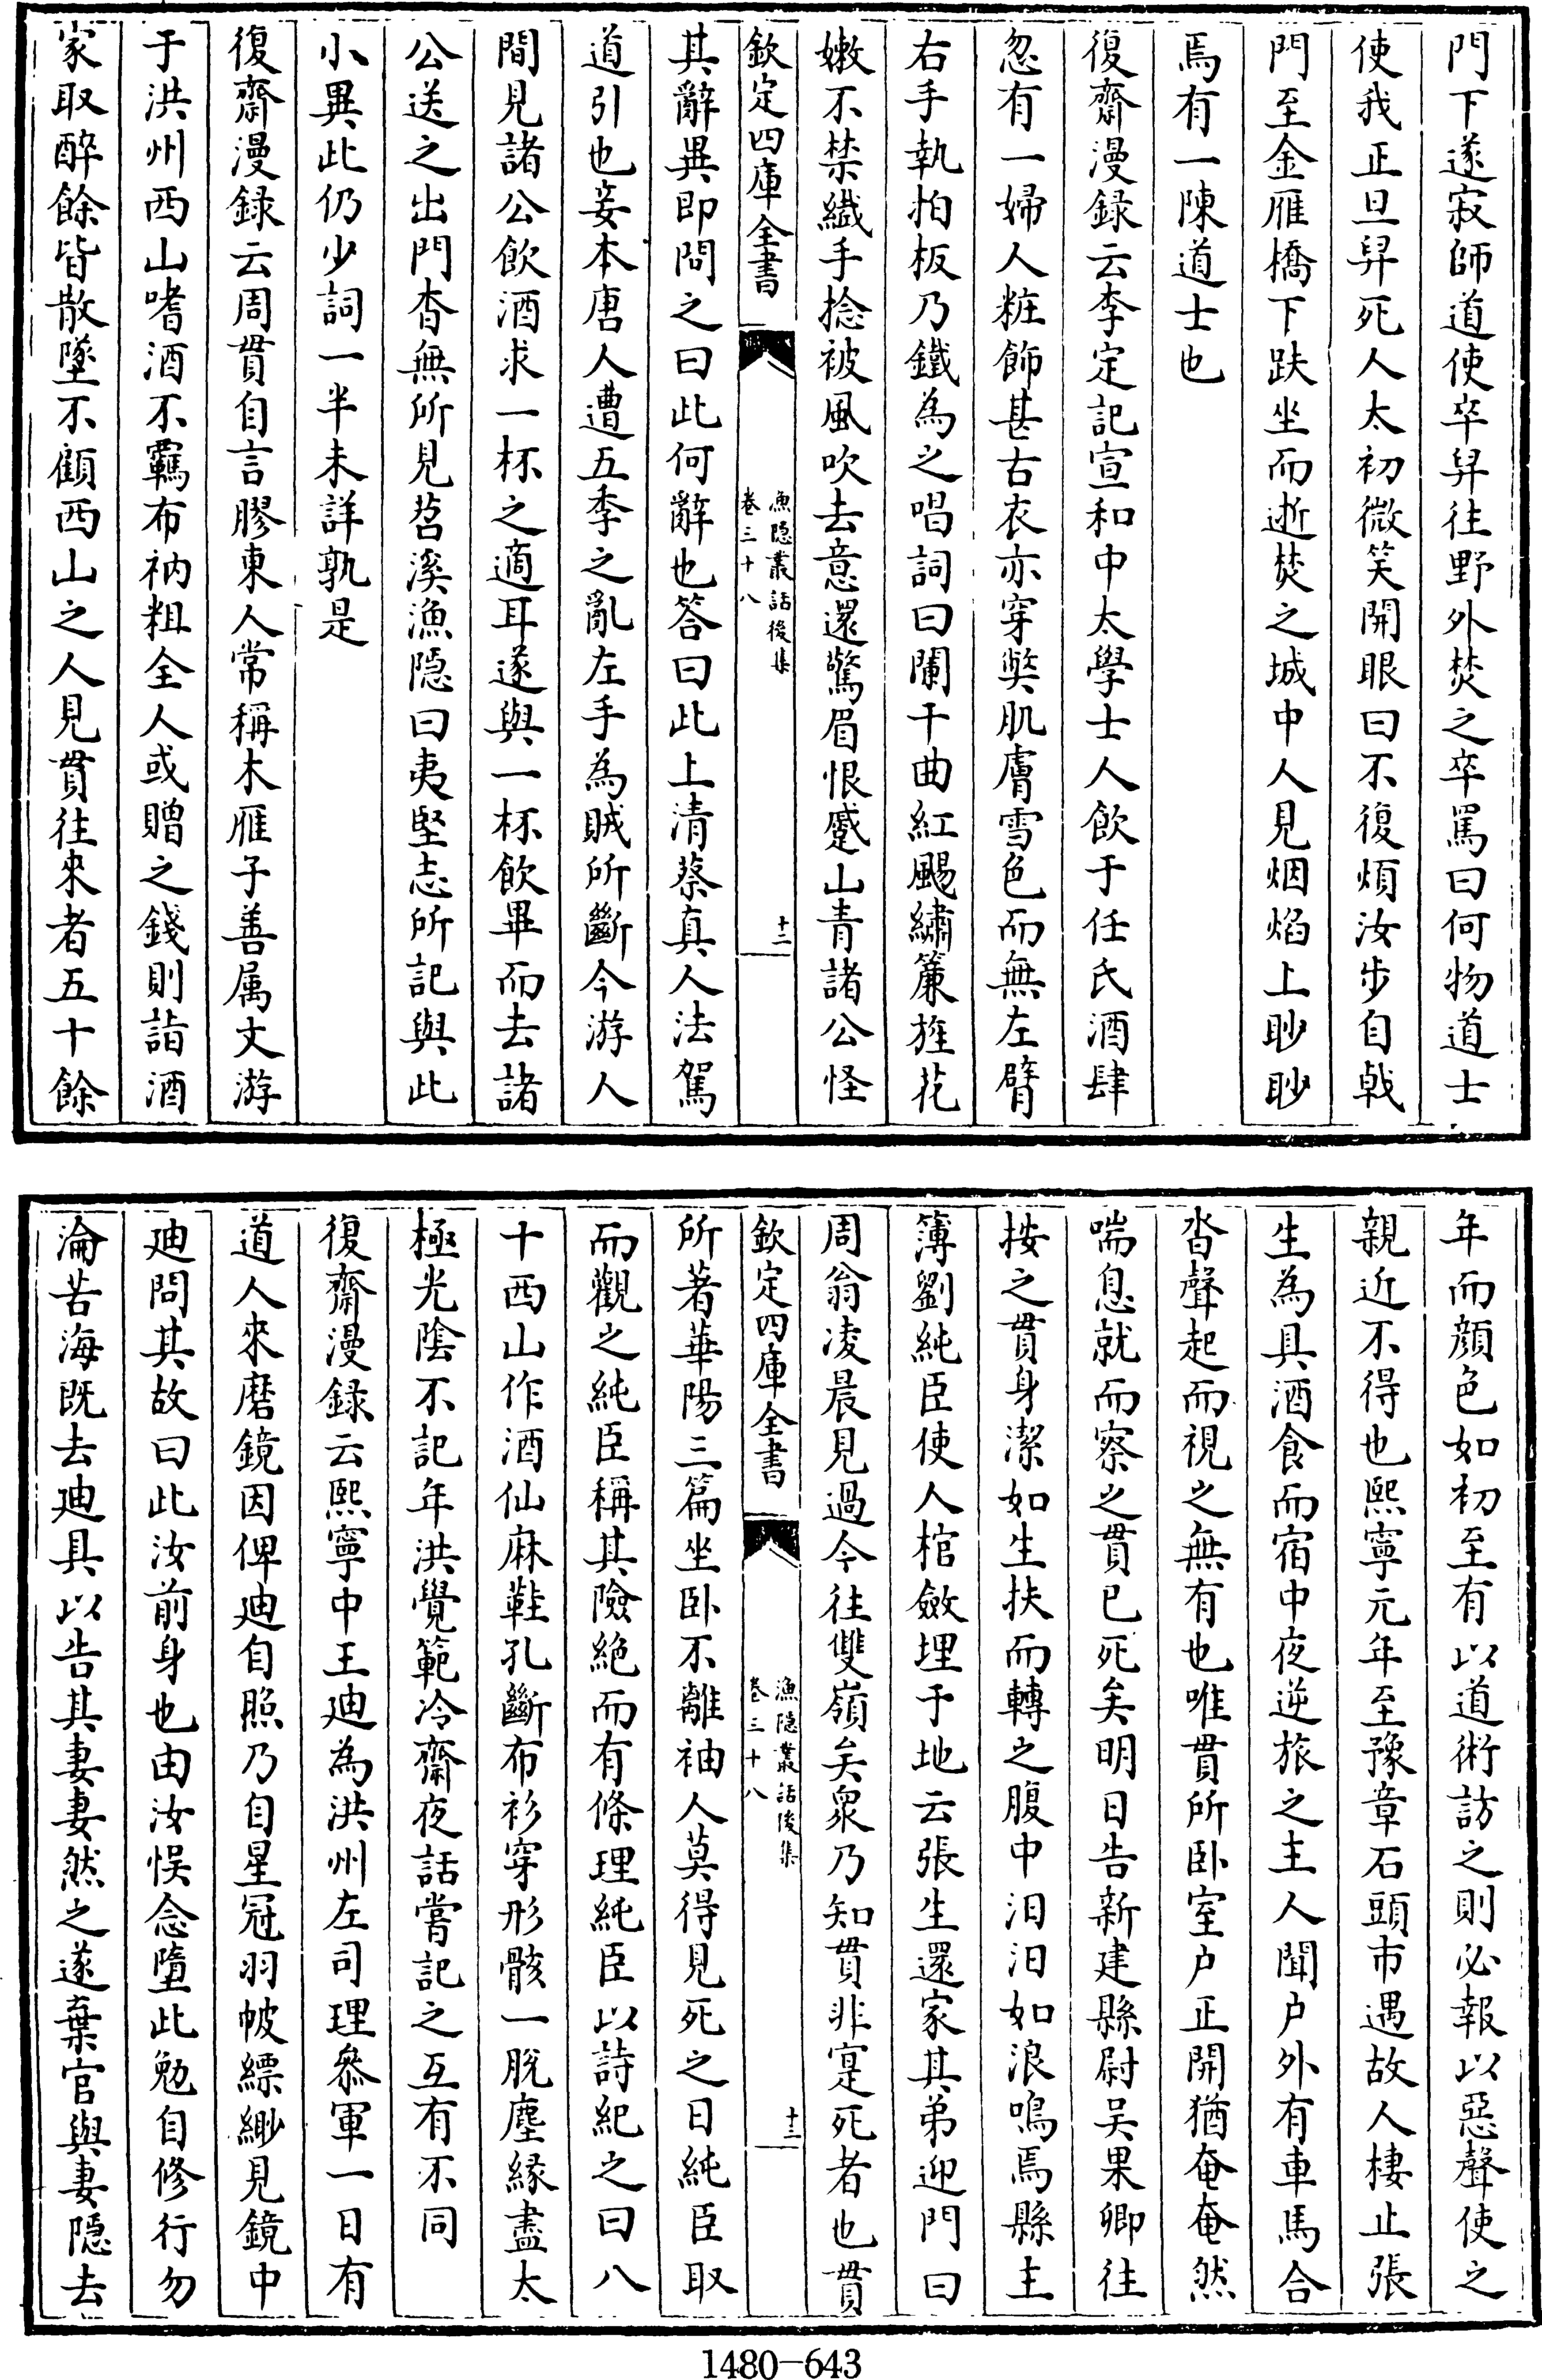 門下遂寂師道使卒舁往野外焚之卒罵曰何物道士
使我正旦舁死人太初微笑開眼曰不復煩汝步自戟
門至金雁橋下趺坐而逝焚之城中人見烟焰上眇眇
焉有一陳道士也
復齋漫録云李定記宣和中太學士人飲于任氏酒肆
忽有一婦人粧飾甚古衣亦穿弊肌膚雪色而無左臂
右手執拍板乃鐵為之唱詞曰闌干曲紅颺繡簾旌花
嫩不禁纖手捻被風吹去意還驚眉恨蹙山青諸公怪
欽定四庫全書
漁隠叢話後集
卷三十八
十二
其辭異即問之曰此何辭也答曰此上清蔡真人法駕
道引也妾本唐人遭五季之亂左手為賊所斷今游人
間見諸公飲酒求一杯之適耳遂與一杯飲畢而去諸
公送之出門杳無所見苕溪漁隠曰夷堅志所記與此
小異此仍少詞一半未詳孰是
復齋漫録云周貫自言膠東人常稱木雁子善属文游
于洪州西山嗜酒不羈布衲粗全人或贈之錢則詣酒
家取醉餘皆散墜不顧西山之人見貫往來者五十餘
年而顔色如初至有以道術訪之則必報以惡聲使之
親近不得也熙寧元年至豫章石頭市遇故人棲止張
生為具酒食而宿中夜逆旅之主人聞户外有車馬合
沓聲起而視之無有也唯貫所卧室户正開猶奄奄然
喘息就而察之貫已死矣明日告新建縣尉吴果卿往
按之貫身潔如生扶而轉之腹中汨汨如浪鳴焉縣主
簿劉純臣使人棺斂埋于地云張生還家其弟迎門曰
周翁凌晨見過今往雙嶺矣衆乃知貫非寔死者也貫
欽定四庫全書
漁隠叢話後集
卷三十八
十三
所著華陽三篇坐卧不離袖人莫得見死之日純臣取
而觀之純臣稱其險絶而有條理純臣以詩紀之曰八
十西山作酒仙麻鞋孔斷布衫穿形骸一脱塵緣盡太
極光陰不記年洪覺範冷齋夜話嘗記之互有不同
復齋漫録云熙寧中王廸為洪州左司理叅軍一日有
道人來磨鏡因俾廸自照乃自星冠羽帔縹緲見鏡中
廸問其故曰此汝前身也由汝悮念墮此勉自修行勿
淪苦海既去廸具以告其妻妻然之遂棄官與妻隠去
1480-643